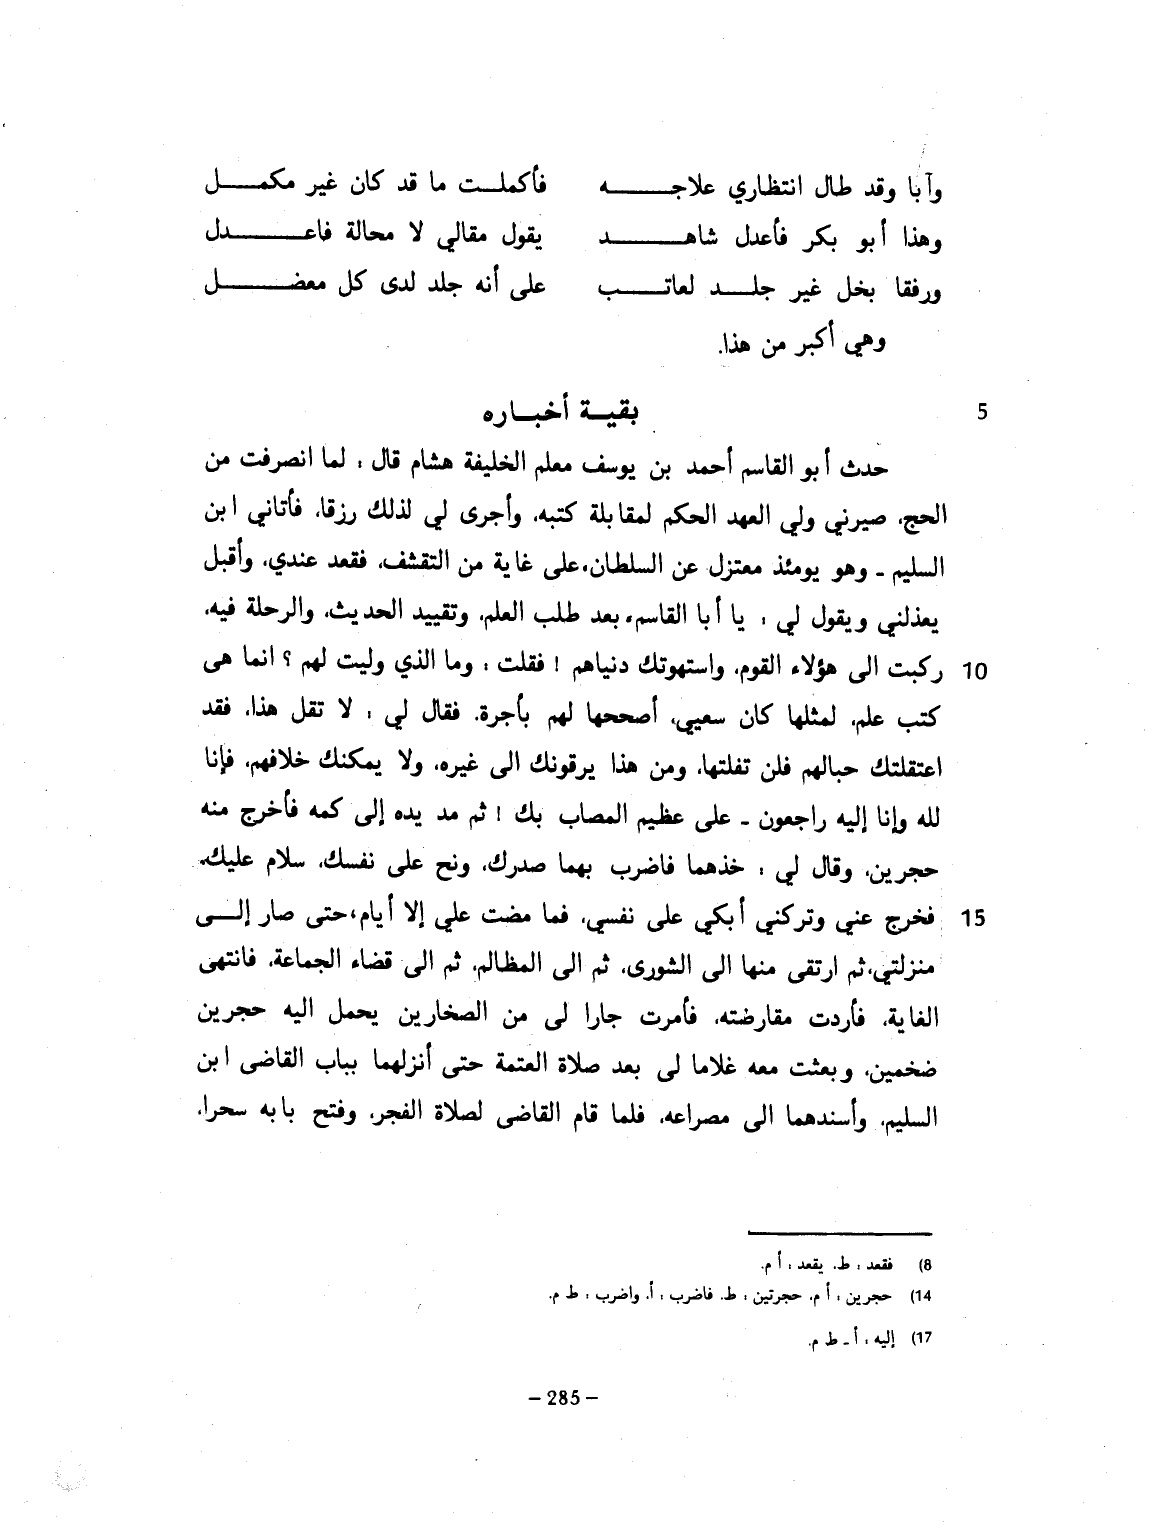 وآبا وقد طال انتظاري علاجه فأكملت ما قد كان غير مكمل
وهذا أبو بكر فأعدل شاهد يقول مقالي لا محالة فاعدل
ورفقا بخل غير جلد لعاتب على أنه جلد لدى كل معضل
وهي أكبر من هذا.
5 بقية أخباره
حدث أبو القاسم أحمد بن يوسف معلم الخليفة هشام قال : لما انصرفت من
الحج، صيرني ولي العهد الحكم لمقابلة كتبه، وأجرى لي لذلك رزقا، فأتاني ابن
السليم - وهو يومئذ معتزل عن السلطان، على غاية من التقشف، فقعد عندي، وأقبل
يعذلني ويقول لي : يا أبا القاسم، بعد طلب العلم، وتقييد الحديث، والرحلة فيه،
10 ركبت الى هؤلاء القوم، واستهوتك دنياهم ! فقلت : وما الذي وليت لهم ؟ انما هى
كتب علم، لمثلها كان سعيي، أصححها لهم بأجرة. فقال لي : لا تقل هذا، فقد
اعتقلتك حبالهم فلن تفلتها، ومن هذا يرقونك الى غيره، ولا يمكنك خلافهم، فإنا
لله وإنا إليه راجعون - على عظيم المصاب بك ! ثم مد يده إلى كمه فأخرج منه
حجرين، وقال لي : خذهما فاضرب بهما صدرك، ونح على نفسك، سلام عليك.
15 فخرج عني وتركني أبكي على نفسي، فما مضت علي إلا أيام، حتى صار إلى
منزلتي، ثم ارتقى منها الى الشورى، ثم الى المظالم، ثم الى قضاء الجماعة، فانتهى
الغاية، فأردت مقارضته، فأمرت جارا لى من الصخارين يحمل اليه حجرين
ضخمين، وبعثت معه غلاما لى بعد صلاة العتمة حتى أنزلهما بباب القاضى ابن
السليم، وأسندهما الى مصراعه، فلما قام القاضى لصلاة الفجر، وفتح بابه سحرا،
8) فقعد : ط. يقعد : أ م.
14) حجرين : أ م، حجرتين : ط. فاضرب : أ. واضرب : ط م.
17) إليه : أ - ط م.
– 285 –